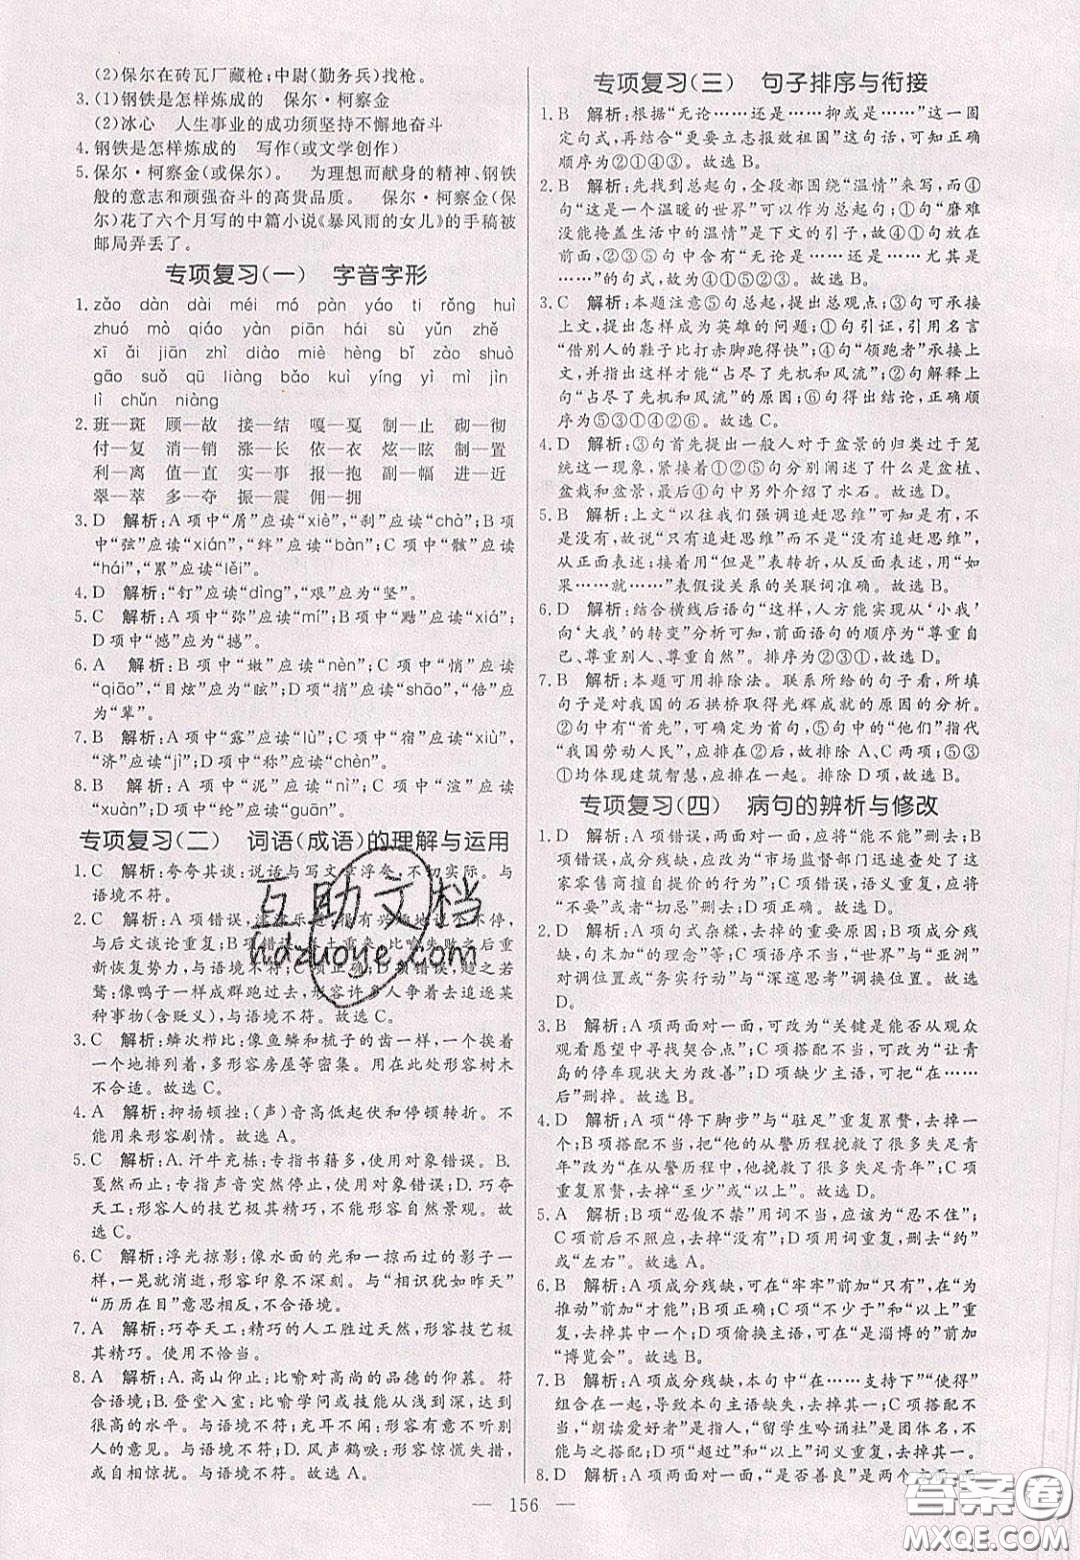 (2)保尔在砖瓦厂藏枪;中尉(勤务兵)找枪。
3.(1)钢铁是怎样炼成的　保尔·柯察金
(2)冰心　人生事业的成功须坚持不懈地奋斗
4.钢铁是怎样炼成的　写作(或文学创作)
5.保尔·柯察金(或保尔)。　为理想而献身的精神、钢铁
般的意志和顽强奋斗的高贵品质。　保尔·柯察金(保
尔)花了六个月写的中篇小说《暴风雨的女儿》的手稿被
邮局弄丢了。
专项复习(一)　字音字形
1. zǎo dàn dài méi mó pàn yáo tì rǒng huì
zhuó mò qiáo yàn piān hái sù yǔn zhě
xī ǎi jiān zhì diào miè hèng bǐ zào shuò
gāo suǒ qū liàng bǎo kuì yíng yì mì jìn
lì chǔn niàng
2.班—斑　顾—故　接—结　嘎—戛　制—止　砌—彻
付—复　消—销　涨—长　依—衣　炫—眩　制—置
利—离　值—直　实—事　报—抱　副—幅　进—近
翠—萃　多—夺　振—震　佣—拥
3. D　解析:A项中“屑”应读“xiè”,“刹”应读“chà”;B项
中“弦”应读“xián”,“绊”应读“bàn”;C项中“骸”应读
“hái”,“累”应读“lěi”。
4. D　解析:“钉”应读“dìng”,“艰”应为“坚”。
5. C　解析:A项中“弥”应读“mí”;B项中“黠”应读“xiá”;
D项中“憾”应为“撼”。
6. A　解析:B项中“嫩”应读“nèn”;C项中“悄”应读
“qiǎo”,“目炫”应为“眩”;D项“捎”应读“shāo”,“倍”应
为“辈”。
7. B　解析:A项中“露”应读“lù”;C项中“宿”应读“xiù”,
“济”应读“jǐ”;D项中“称”应读“chèn”。
8. B　解析:A项中“泥”应读“nì”;C项中“渲”应读
“xuàn”;D项中“纶”应读“guān”。
专项复习(二)　词语(成语)的理解与运用
1. C　解析:夸夸其谈:说话与写文章浮夸,不切实际。与
语境不符。
2. C　解析:A项错误,津津乐道:很有兴趣地说个不停,
与后文谈论重复;B项错误,卷土重来:比喻失败之后重
新恢复势力,与语境不符;D项错误,趋之若
鹜:像鸭子一样成群跑过去,形容许多人争着去追逐某
种事物(含贬义),与语境不符。故选C。
3. C　解析:鳞次栉比:像鱼鳞和梳子的齿一样,一个挨着
一个地排列着,多形容房屋等密集。用在此处形容树木
不合适。故选C。
4. A　解析:抑扬顿挫:(声)音高低起伏和停顿转折。不
能用来形容剧情。故选A。
5. C　解析:A.汗牛充栋:专指书籍多,使用对象错误。B.
戛然而止:专指声音突然停止,使用对象错误;D.巧夺
天工:形容人的技艺极其精巧,不能形容自然景观。故
选C。
6. C　解析:浮光掠影:像水面的光和一掠而过的影子一
样,一晃就消逝,形容印象不深刻。与“相识犹如昨天”
“历历在目”意思相反,不合语境。
7. A　解析:巧夺天工:精巧的人工胜过天然,形容技艺极
其精巧。使用不恰当。
8. A　解析:A.高山仰止:比喻对高尚的品德的仰慕。符
合语境;B.登堂入室:比喻学问或技能从浅到深,达到
很高的水平。与语境不符;C.充耳不闻:形容不愿听别
人的意见。与语境不符;D.风声鹤唳:形容惊慌失措,
或自相惊扰。与语境不符。故选A。
专项复习(三)　句子排序与衔接
1. B　解析:根据“无论……还是……抑或是……”这一固
定句式,再结合“更要立志报效祖国”这句话,可知正确
顺序为②①④③。故选B。
2. B　解析:先找到总起句,全段都围绕“温情”来写,而④
句“这是一个温暖的世界”可为总起句;①句“磨难
没能掩盖生活中的温情”是下文的引子,方式为概
述,②③⑤句中含有“无论是……还是……还是……”
的句式,故为④①②⑤③。故选B。
3. C　解析:本题注意⑤句总起,提出总观点;③句承接
上文,提出怎样成为英雄的问题;①句引证,引用名言
“借别人的鞋子比打赤脚跑得快”;④句“领跑者”承接上
文,并指出这样才能“占尽了先机和风流”;②句解释上
句“占尽了先机和风流”的原因;⑥句得出结论,正确顺
序为⑤③①④②⑥。故选C。
4. D　解析:③句首先提出一般人对于盆景的归类过于笼
统这一现象,紧接着①②⑤句分别阐述了什么是盆植、
盆栽和盆景,最后④句中另外介绍了水石。故选D。
5. B　解析:上文“以往我们强调追赶思维”可知是有,不
是没有,故说“只有追赶思维”而不是“没有追赶思维”,
从正面表述;接着用“但是”表转折,从反面表述,用“如
果……就……”表假设关系的关联词准确。故选B。
6. D　解析:结合横线后语句“这样,人方能实现从‘小我’
向‘大我’的转变”分析可知,前面语句的顺序为“尊重自
己、尊重别人、尊重自然”。故排序为②③①。故选D。
7. B　解析:本题可用排除法。联系所给的句子看,所填
句子是对我国的石拱桥取得光辉成就的原因的分析。
②句中有“首先”,可知②句为首句,⑤句中的“他们”指代
“我国劳动人民”,应排在④后,故排除A、C两项;⑤③
①均体现建筑智慧,应排在一起。排除D项。故选B。
专项复习(四)　病句的辨析与修改
1. D　解析:A项错误,两面对一面,应将“能不能”删去;B
项错误,成分残缺,应为“市场监督部门迅速查处了这
家零售商擅自提价的行为”;C项错误,语义重复,应将
“不要”或者“切忌”删去;D项正确。故选D。
2. D　解析:A项句式杂糅,去掉的重要原因;B项成分残
缺,句末加“的理念”等;C项语序不当,“世界”与“亚洲”
对调位置或“务实行动”与“深邃思考”调换位置。故选
D。
3. B　解析:A项两面对一面,可改为“关键是能否从观众
观看愿望中寻找契合点”;C项搭配不当,可改为“让青
岛的停车现状大为改善”;D项缺少主语,可把“在……
后”删掉。故选B。
4. D　解析:A项“停下脚步”与“驻足”重复累赘,去掉一
个;B项搭配不当,把“他的从警历程挽救了很多失足青
年”改为“在从警历程中,他挽救了很多失足青年”;C项
重复累赘,去掉“至少”或“以上”。故选D。
5. A　解析:B项“忍俊不禁”用词不当,应该为“忍不住”;
C项前后不照应,去掉“没有”;D项重复累赘,去掉“约”
或“左右”。故选A。
6. B　解析:A项成分残缺,可在“牢牢”前加“只有”,在“为
推动”前加“才能”;B项正确;C项“不少于”和“以上”重
复,去掉其中一个;D项偷换主语,可改为“的,是淄博的
“博览会”。故选B。
7. B　解析:A项成分残缺,本句中“在……支持下”“使得”
组合在一起,导致本句主语缺失,去掉其一;C项不对
等,“朗读爱好者”是指人,“留学生吟诵社”是团体名,不
能与之搭配;D项“超过”和“以上”词义重复,去掉其一。
8. D　解析:A项
156
互助文档
hdzuoye.com
答案圈
MXQE.COM